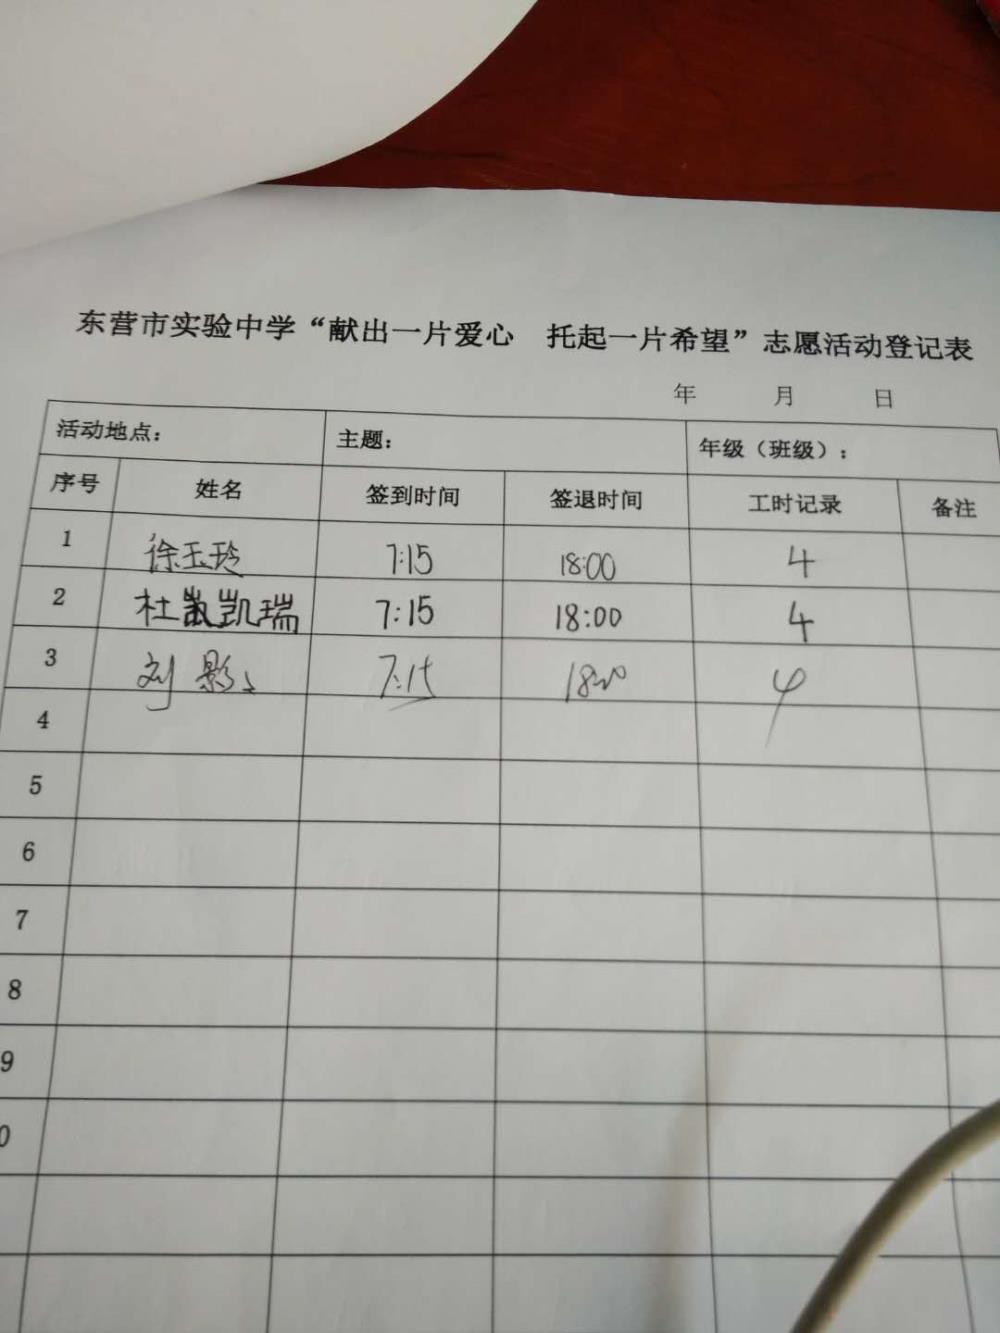 东营市实验中学“献出一片爱心 托起一片希望”志愿活动登记表
年 月 日
活动地点： 主题： 年级（班级）：
序号 姓名 签到时间 签退时间 工时记录 备注
1 徐玉玲 7:15 18:00 4
2 杜凯瑞 7:15 18:00 4
3 刘影 7:15 1800 4
4
5
6
7
8
9
0